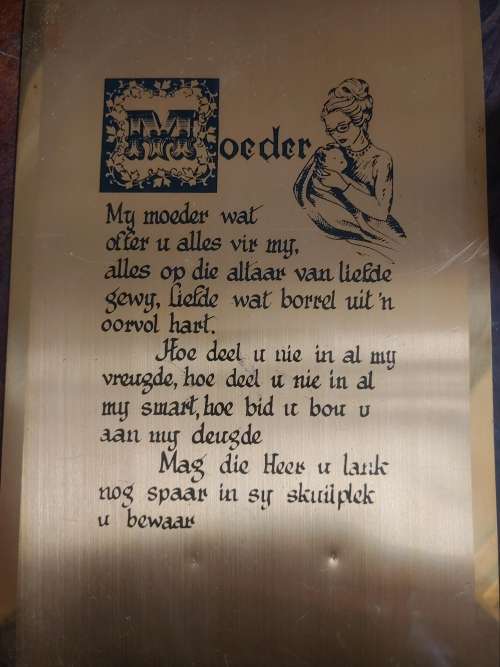 Moeder
My moeder wat
offer u alles vir my,
alles op die altaar van liefde
gewy, Liefde wat borrel uit 'n
oorvol hart.
Hoe deel u nie in al my
vreugde, hoe deel u nie in al
my smart, hoe bid u bou u
aan my deugde
Mag die Heer u lank
nog spaar in sy skuilplek
u bewaar